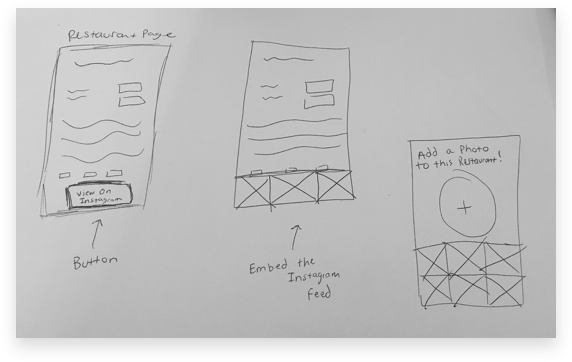 Restaurant Page
View On
Instagram
Button
Embed the
Instagram
Feed
Add a Photo
to this Restaurant!